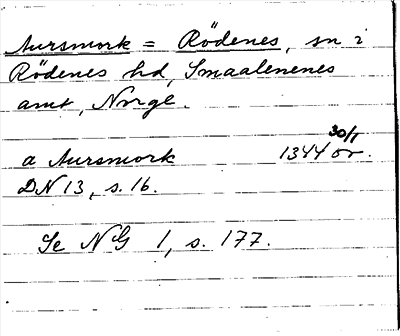 Aursmork = Rödenes, sn i
Rödenes hd, Smaalenenes
amt, Norge.
30/1
a Aursmork 1344 or.
DN 13, s. 16.
Se NG 1, s. 177.